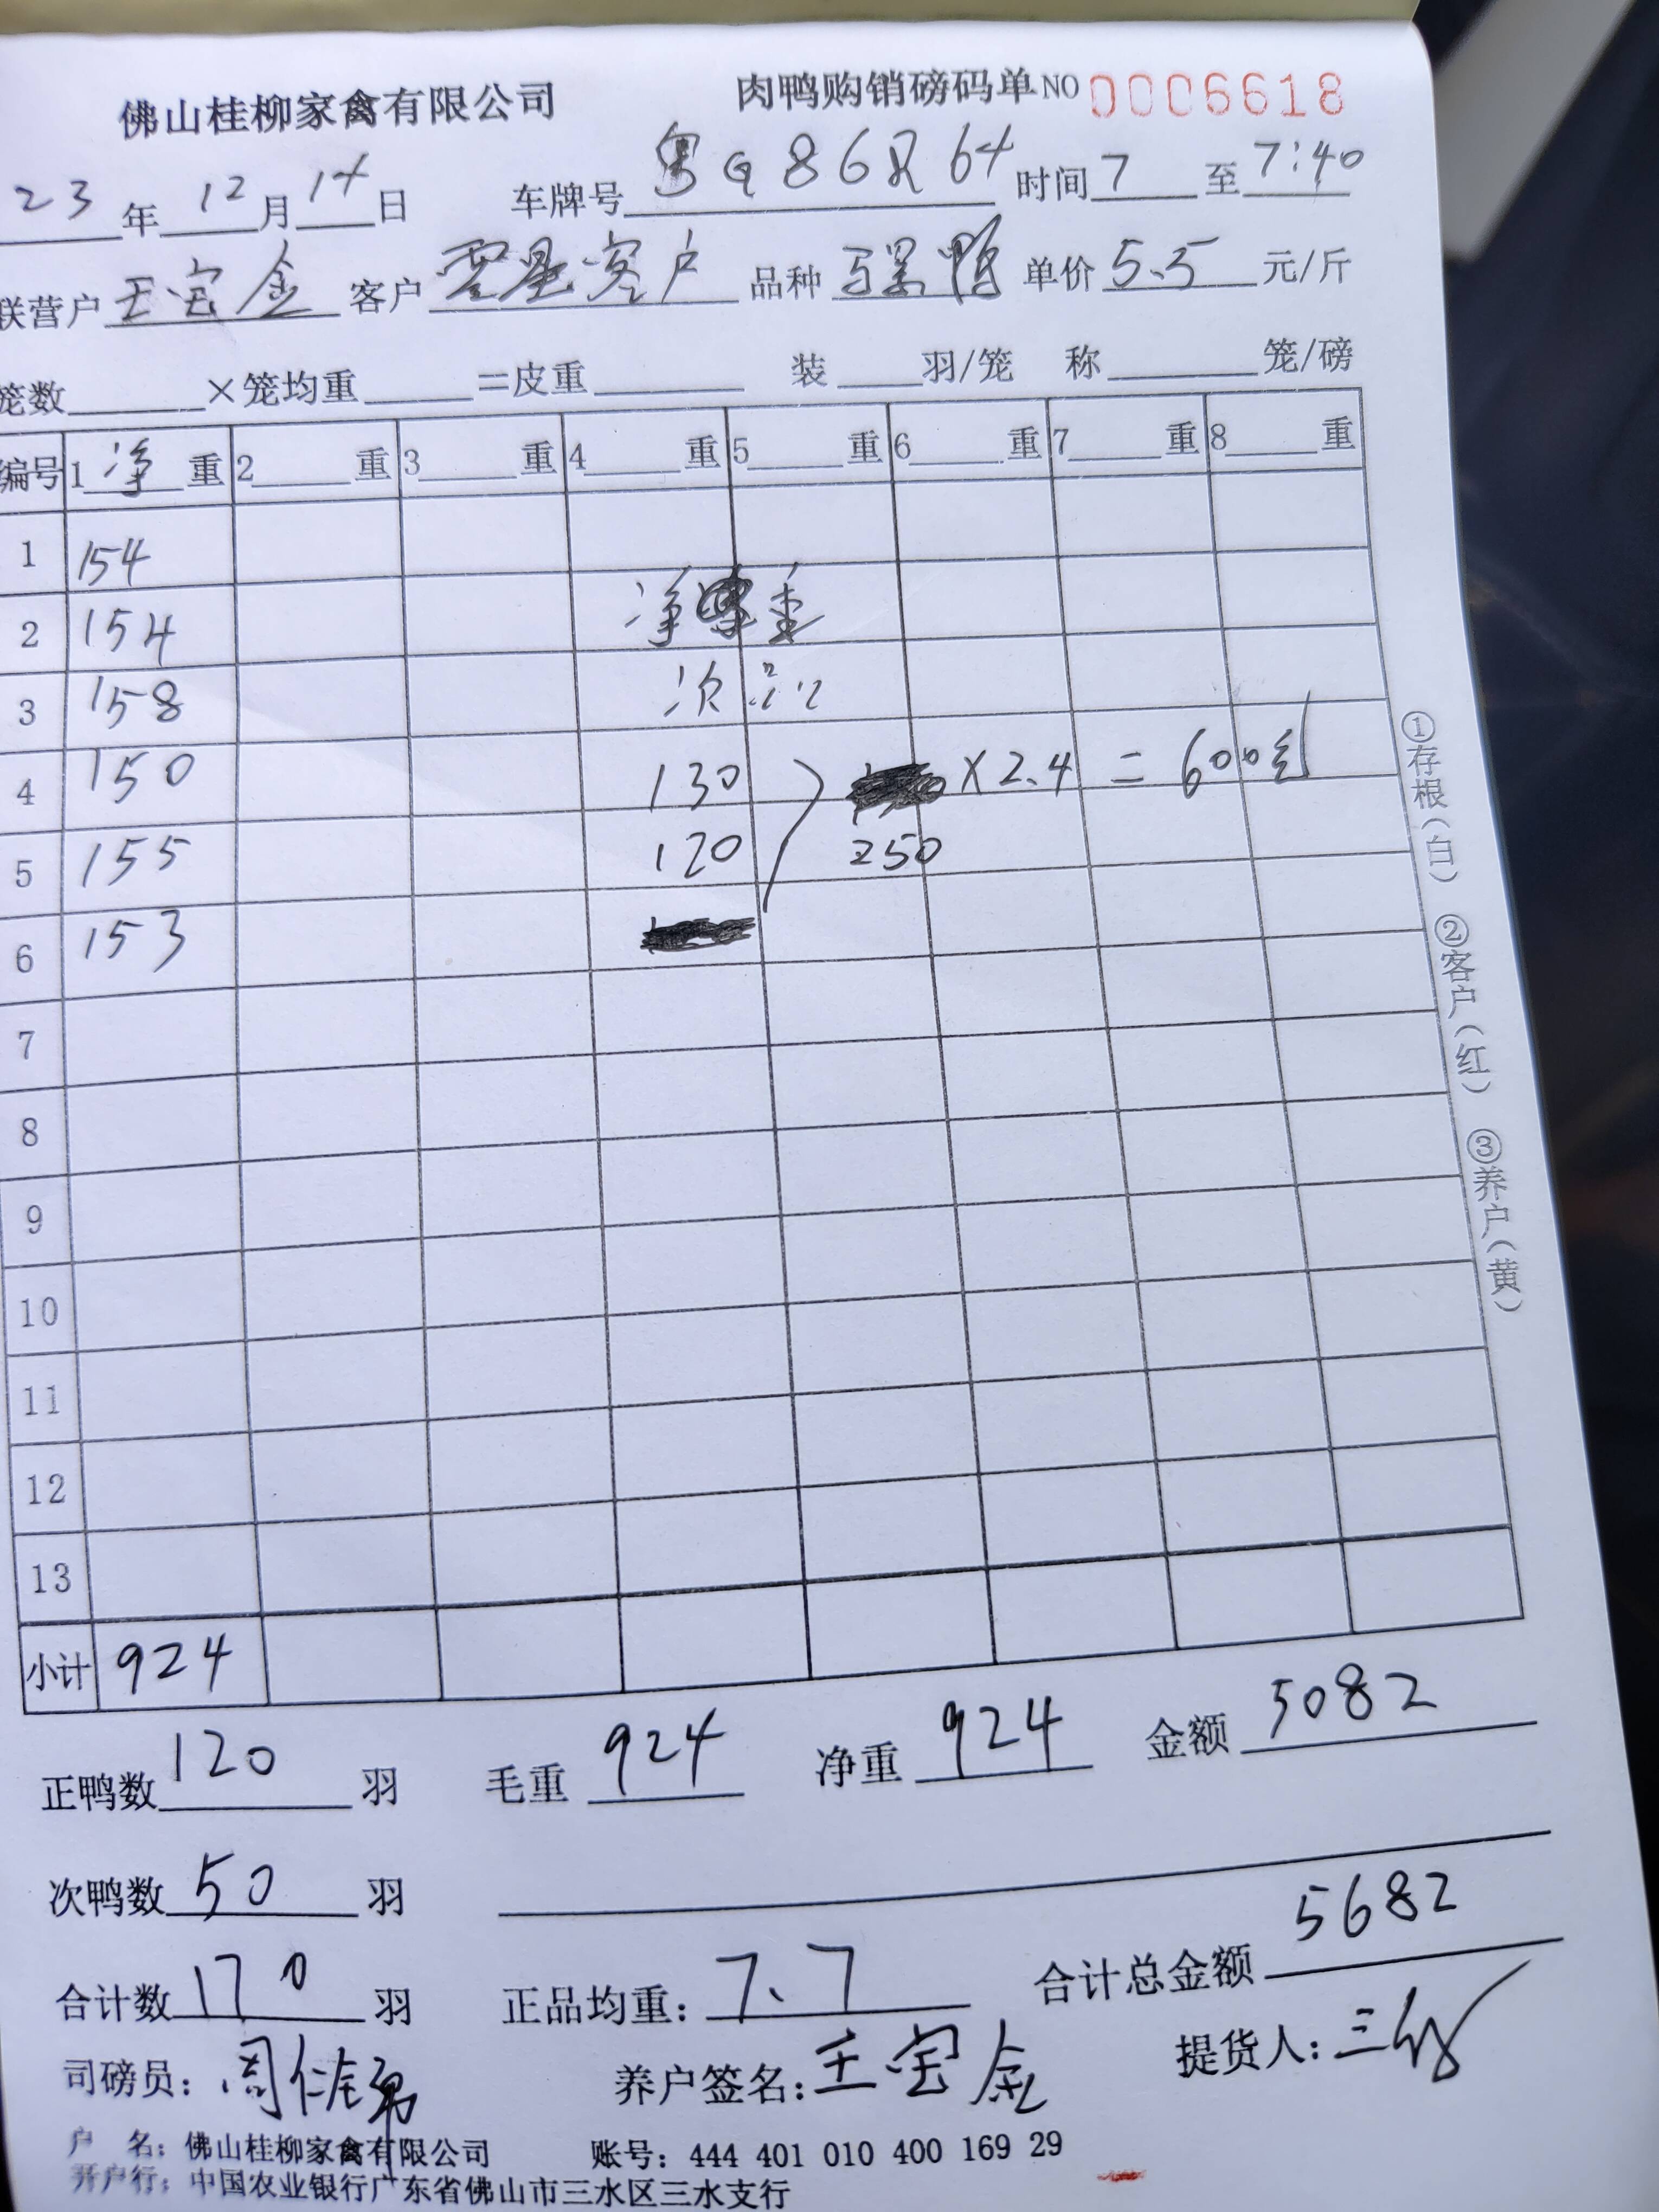 佛山桂柳家禽有限公司 肉鸭购销磅码单 NO 0006618
23年12月14日 车牌号 粤G86R64 时间 7 至 7:40
联营户 王宝金 客户 零星客户 品种 骡鸭 单价 5.5 元/斤
笼数 ×笼均重 =皮重 装 羽/笼 称 笼/磅
编号 1 净 重 2 重 3 重 4 重 5 重 6 重 7 重 8 重
1 154
2 154 净 重
3 158 次品
4 150 130 ×2.4 = 600
5 155 120 250
6 153
7
8
9
10
11
12
13
小计 924
正鸭数 120 羽 毛重 924 净重 924 金额 5082
次鸭数 50 羽
合计数 170 羽 正品均重: 7.7 合计总金额 5682
司磅员: 养户签名: 王宝金 提货人:
户 名: 佛山桂柳家禽有限公司 账号: 444 401 010 400 169 29
开户行: 中国农业银行广东省佛山市三水区三水支行
①存根(白) ②客户(红) ③养户(黄)